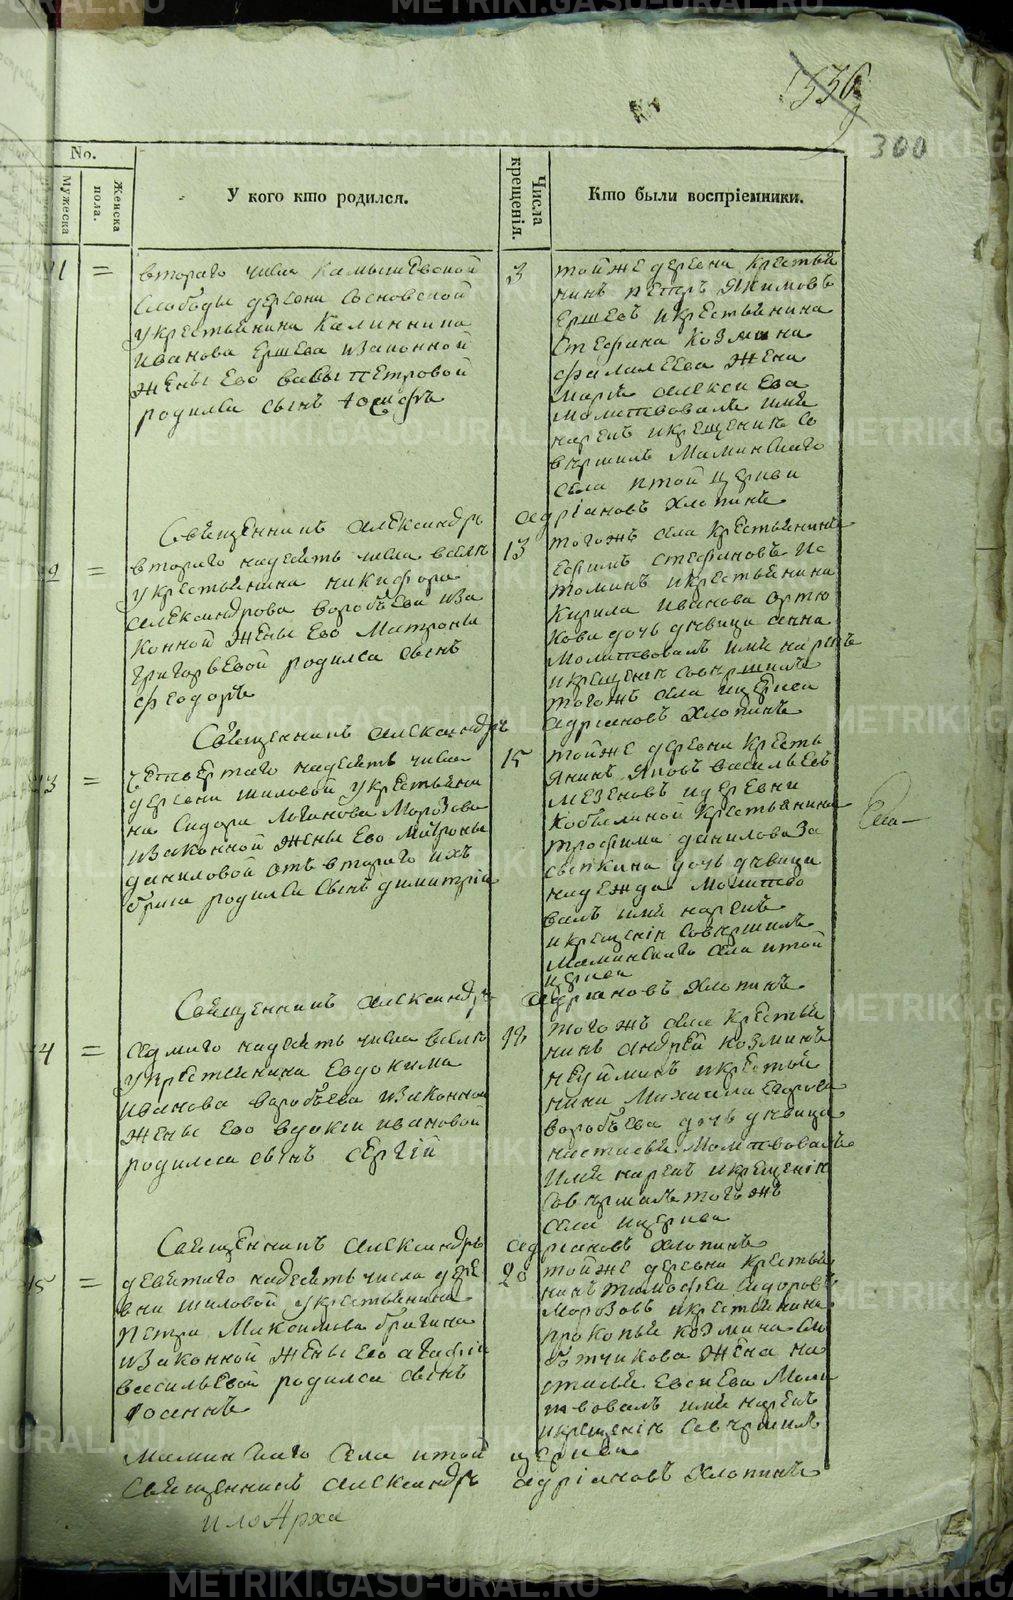 336
300
No.
Мужеска
Женска
пола.
У кого кто родился.
Числа
крещенiя.
Кто были воспрiемники.
1 =
втораго числа Камышевской
Слободы деревни Сосновской
у крестьянина Калинника
Иванова Ершева и законной
жены его Савы Петровой
родился сынъ Iосифъ
3
той же деревни крестья
нинъ Петръ Якимовъ
Ершевъ и крестьянина
Стефана Козмина
Фалалеева жена
Марiя Алексиева
молитвовалъ имя
нарекъ и крещенiе со
вершилъ Маминскаго
села и той церкви
Священникъ Александръ Адрiановъ Хлопинъ
2 =
втораго надесять числа в селе
у крестьянина Никифора
Александрова Воробьева и за
конной жены его Матроны
Григорьевой родился сынъ
Феодоръ
13
того жъ села крестьянинъ
Ефимъ Стефановъ Ис
томинъ и крестьянина
Кирила Иванова Артю
хова дочь девица Анна
молитвовалъ имя нарекъ
и крещенiе совершилъ
того жъ села и церкви
Священникъ Александръ Адрiановъ Хлопинъ
3 =
четвертаго надесять числа
деревни Шиловой у крестьяни
на Сидора Логинова Морозова
и законной жены его Матроны
Даниловой отъ втораго ихъ
брака родился сынъ Димитрiй
15
той же деревни кресть
янинъ Яковъ Васильевъ
Мезеновъ и деревни
Кобылиной крестьянина
Трофима Данилова За
сыпкина дочь девица
Надежда молитво
валъ имя нарекъ
и крещенiе совершилъ
Маминскаго села и той
церкви
Священникъ Александръ Адрiановъ Хлопинъ
4 =
седмаго надесять числа в селе
у крестьянина Евдокима
Иванова Воробьева и законной
жены его Вдокiи Ивановой
родился сынъ Сергiй
18
того жъ села крестья
нинъ Андрей Козминъ
Неуйминъ и крестья
нина Михаила Егорова
Воробьева дочь девица
Настасья молитвовалъ
имя нарекъ и крещенiе
совершилъ того жъ
села и церкви
Священникъ Александръ Адрiановъ Хлопинъ
5 =
девятаго надесять числа дере
вни Шиловой у крестьянина
Петра Максимова Брагина
и законной жены его Агафiи
Васильевой родился сынъ
Iоаннъ
20
той же деревни крестья
нинъ Тимофей Сидоровъ
Морозовъ и крестьянина
Прокопья Козмина Сло
ботчикова жена На
стасья Евсиева моли
твовалъ имя нарекъ
и крещенiе совершилъ
Маминскаго села и той церкви
Священникъ Александръ Адрiановъ Хлопинъ
METRIKI.GASO-URAL.RU